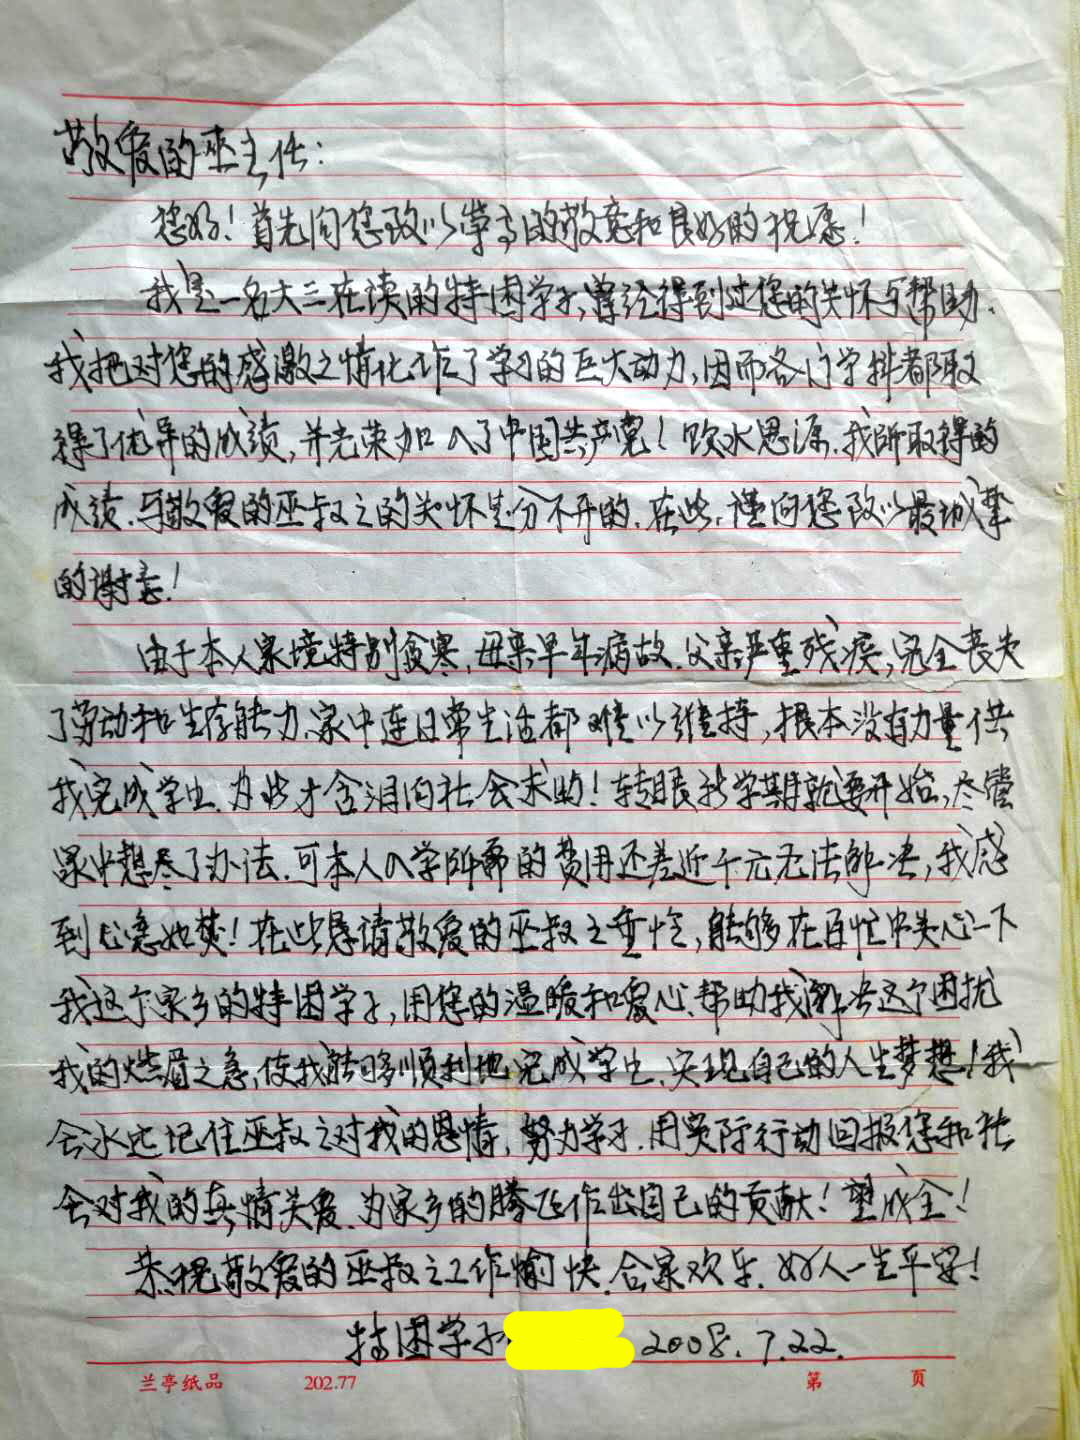 敬爱的巫主任：
您好！首先向您致以崇高的敬意和良好的祝愿！
我是一名大三在读的特困学子，曾经得到过您的关怀与帮助．
我把对您的感激之情化作了学习的巨大动力，因而各门学科都取
得了优异的成绩，并光荣加入了中国共产党！饮水思源．我所取得的
成绩．与敬爱的巫叔叔的关怀是分不开的．在此，谨向您致以最诚挚
的谢意！
由于本人家境特别贫寒，母亲早年病故．父亲严重残疾，完全丧失
了劳动和生存能力．家中连日常生活都难以维持，根本没有力量供
我完成学业．为此才含泪向社会求助！转眼新学期就要开始，尽管
家中想尽了办法．可本人入学所需的费用还差近千元无法解决，我感
到心急如焚！在此恳请敬爱的巫叔叔垂怜，能够在百忙中关心一下
我这个家乡的特困学子，用您的温暖和爱心．帮助我解决这个困扰
我的燃眉之急，使我能够顺利地完成学业．实现自己的人生梦想！我
会永远记住巫叔叔对我的恩情，努力学习．用实际行动回报您和社
会对我的真情关爱．为家乡的腾飞作出自己的贡献！望成全！
恭祝敬爱的巫叔叔工作愉快．合家欢乐．好人一生平安！
特困学子 2008.7.22.
兰亭纸品 202.77 第 页